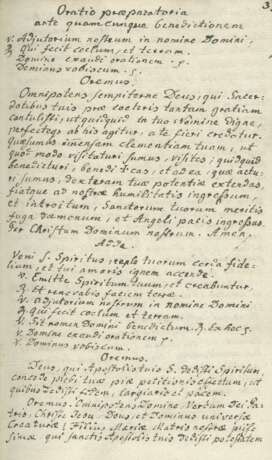 3.
Oratio præparatoria
ante quamcunque benedictionem
V. Adjutorium nostrum in nomine Domini,
R. qui fecit coelum, et terram.
Domine exaudi orationem
Dominus vobiscum
Oremus
Omnipotens sempiterne Deus, qui Sacer-
dotibus tuis præ coeteris tantam gratiam
contulisti, ut quidquid in tuo Nomine digne,
perfecteq ab his agitur, a te fieri credatur.
quæsumus immensam clementiam tuam, ut
quod modo visitaturi sumus, visites, quidquid
benedicturi, benedicas, et ad ea, quæ actu-
ri sumus, dexteram tuæ potentiæ extendas,
fiatque ad nostræ humilitatis ingressum,
et introitum, Sanctorum tuorum meritis
fuga dæmonum, et Angeli pacis ingressus.
Per Christum Dominum nostrum. Amen.
Adde.
Veni S. Spiritus, reple tuorum corda fide-
lium, et tui amoris ignem accende.
V. Emitte Spiritum tuum, et creabuntur.
R. Et renovabis faciem terræ.
V. Adjutorium nostrum in nomine Domini
R. qui fecit coelum et terram.
V. Sit nomen Domini benedictum. R. Ex hoc
V. Domine exaudi orationem
V. Dominus vobiscum.
Oremus.
Deus, qui Apostolis tuis S. dedisti Spiritum,
concede plebi tuæ piæ petitionis effectum, ut
quibus dedisti fidem, largiaris et pacem.
Oremus. Omnipotens Domine, Verbum Dei Pa-
tris, Christe Jesu, Deus, et Dominus universæ
Creaturæ, Filius Mariæ Matris nostræ piis-
simæ qui sanctis Apostolis tuis dedisti potestatem